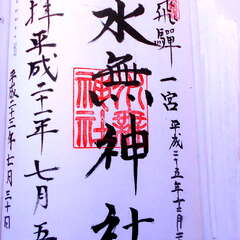 飛驒一宮
平成二十五年十二月
水無神社
拝平成二十一年七月五
平成二十三年七月三十日